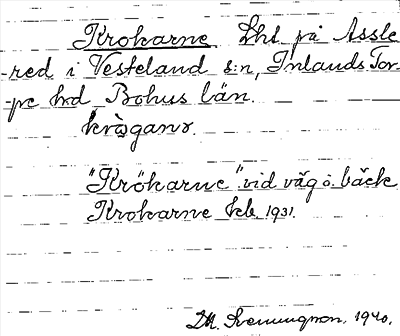 Krokarne Lht på Assle
red i Vesteland s:n, Inlands Tor-
pe hd Bohus län.
kròganr.
"Krökarne" vid väg o. bäck
Krokarne kb 1931.
1940.